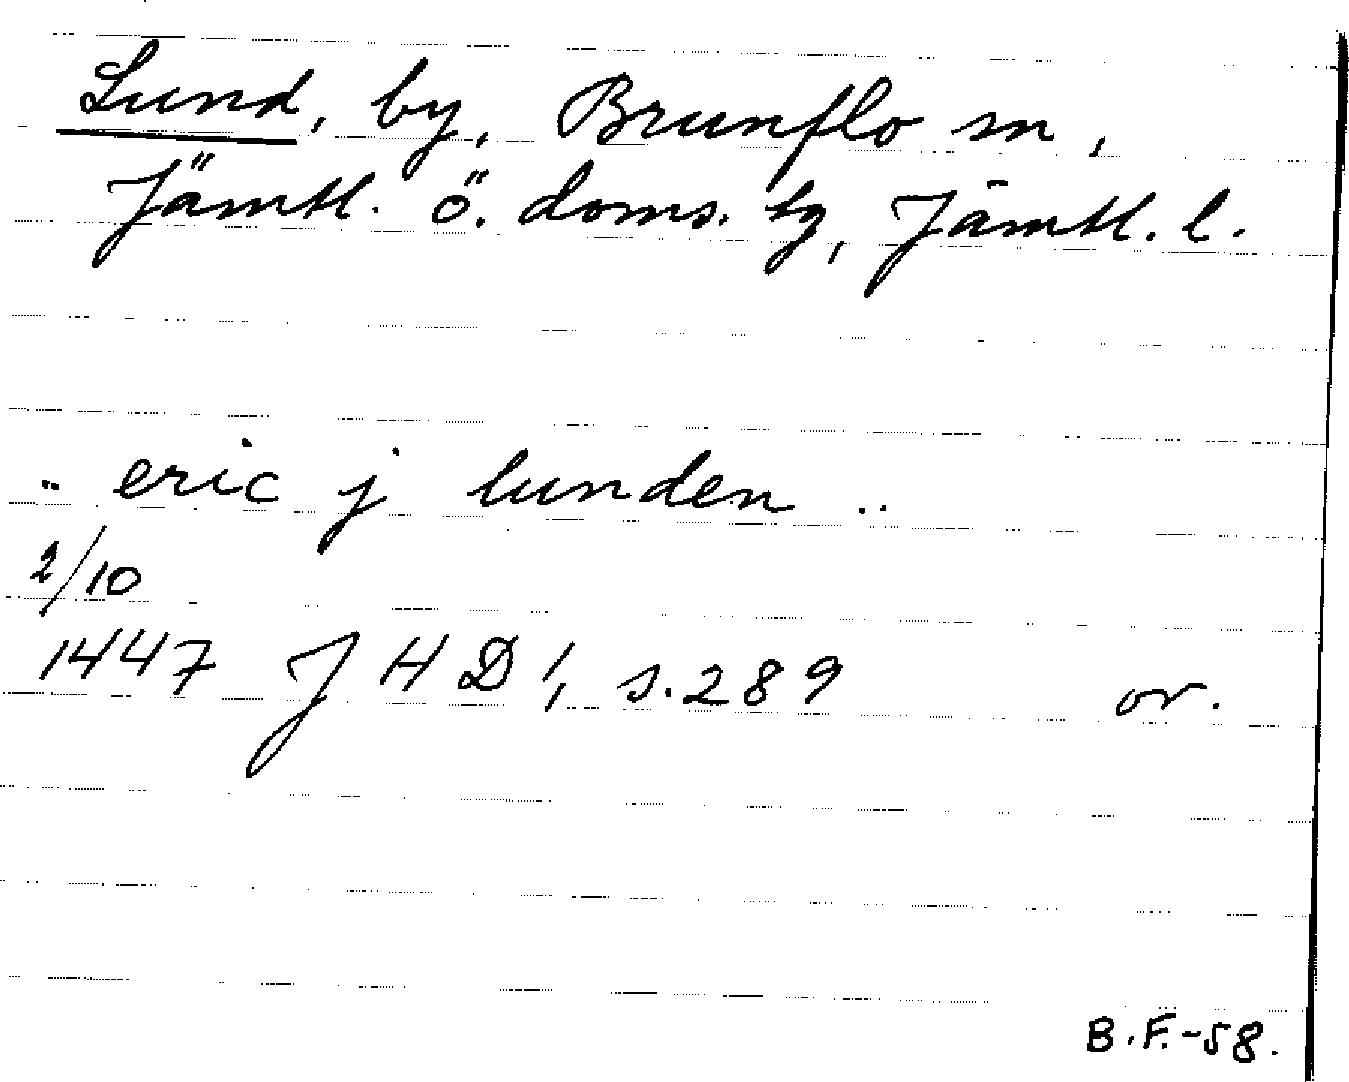 Lund, by, Brunflo sn,
Jämtl. ö. doms. tg, Jämtl. l.
.. eric j lunden ..
2/10
1447 J H D 1, s. 289 or.
B.F.-58.